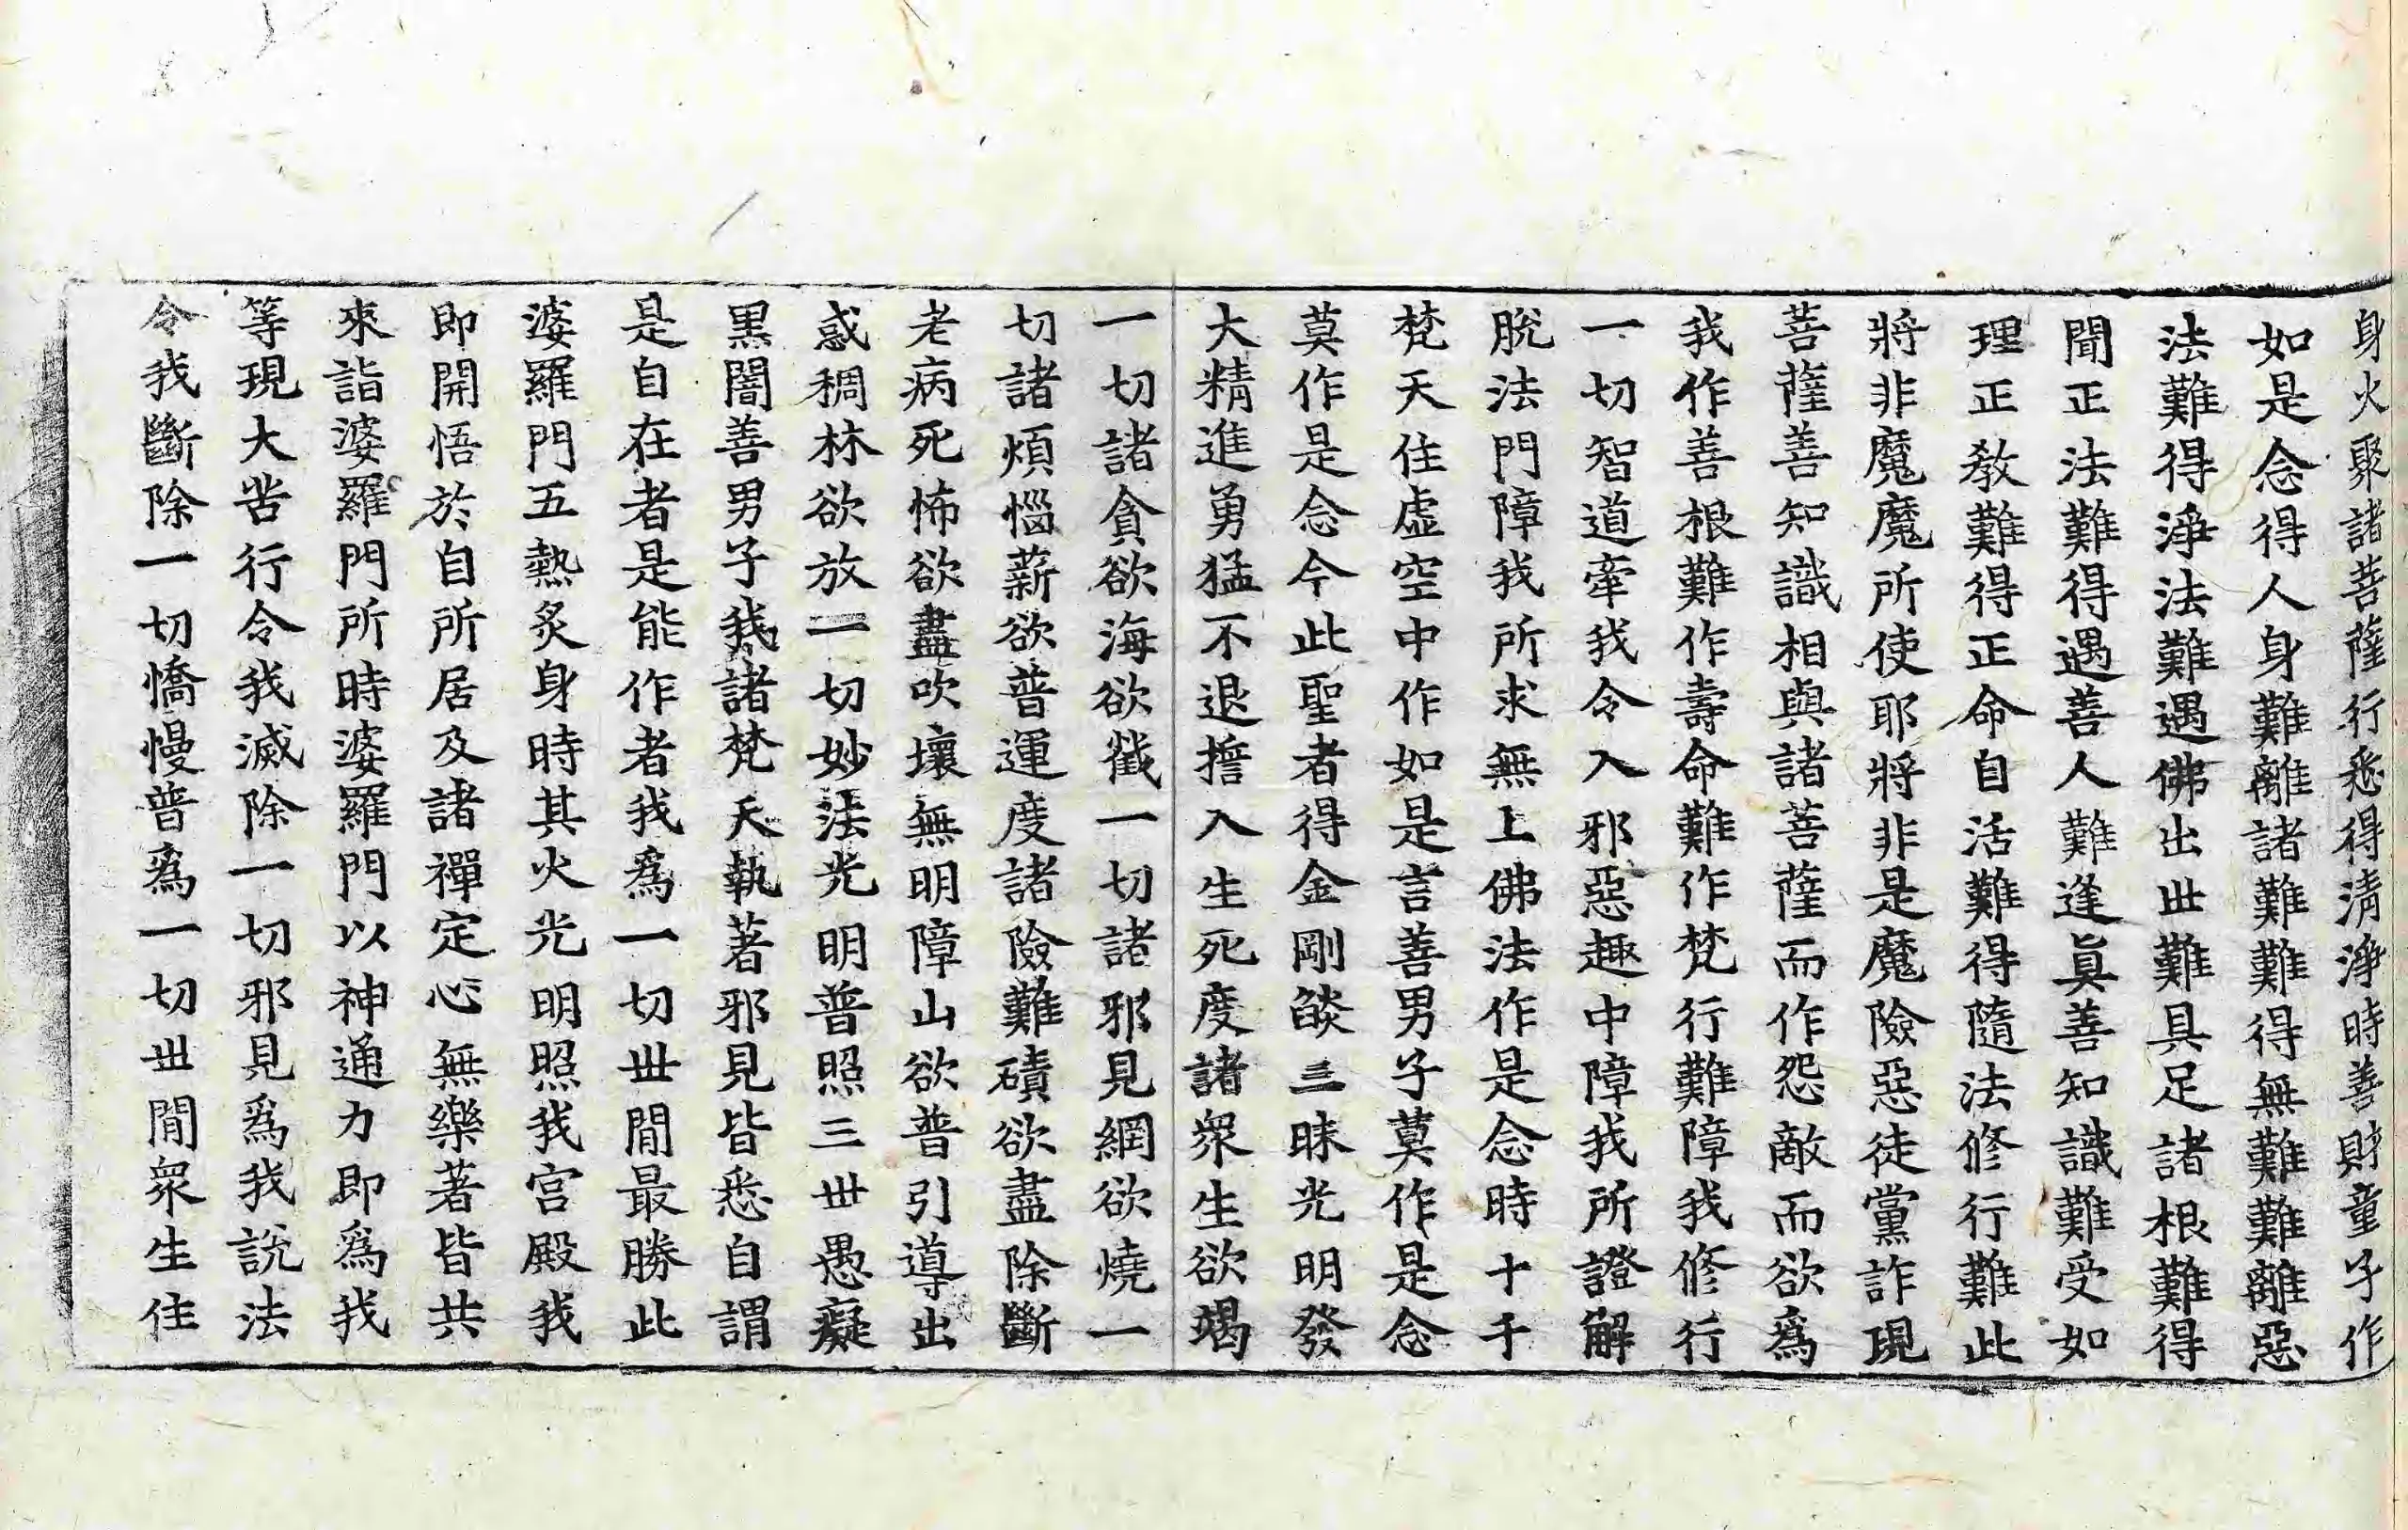 身火聚諸菩薩行悉得清淨時善財童子作
如是念得人身難離諸難難得無難難離惡
法難得淨法難遇佛出世難具足諸根難得
聞正法難得遇善人難逢眞善知識難受如
理正教難得正命自活難得隨法修行難此
將非魔魔所使耶將非是魔險惡徒黨詐現
菩薩善知識相與諸菩薩而作怨敵而欲爲
我作善根難作壽命難作梵行難障我修行
一切智道牽我令入邪惡趣中障我所證解
脫法門障我所求無上佛法作是念時十千
梵天住虛空中作如是言善男子莫作是念
莫作是念今此聖者得金剛燄三昧光明發
大精進勇猛不退擔入生死度諸衆生欲竭
一切諸貪欲海欲截一切諸邪見網欲燒一
切諸煩惱薪欲普運度諸險難磧欲盡除斷
老病死怖欲盡吹壞無明障山欲普引導出
惑稠林欲放一切妙法光明普照三世愚癡
黑闇善男子我諸梵天執著邪見皆悉自謂
是自在者是能作者我爲一切世間最勝此
婆羅門五熱炙身時其火光明照我宮殿我
即開悟於自所居及諸禪定心無樂著皆共
來詣婆羅門所時婆羅門以神通力即爲我
等現大苦行令我滅除一切邪見爲我說法
令我斷除一切憍慢普爲一切世間衆生住